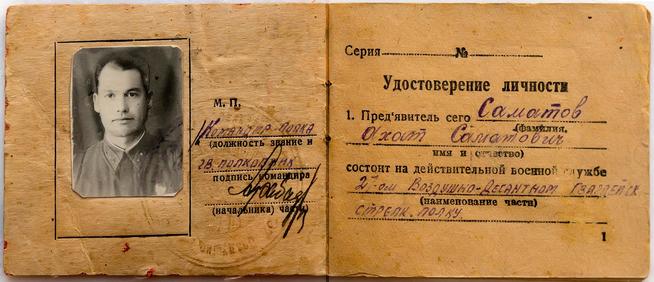 М. П.
Командир полка
(должность звание и
гв. полковник
подпись командира
(начальника) части)
Серия №
Удостоверение личности
1. Пред'явитель сего Саматов
(фамилия,
Ахат Саматович
имя и отчество)
состоит на действительной военной службе
2-ом Воздушно-Десантном Гвардейск
(наименование части)
стрелк. полку
1